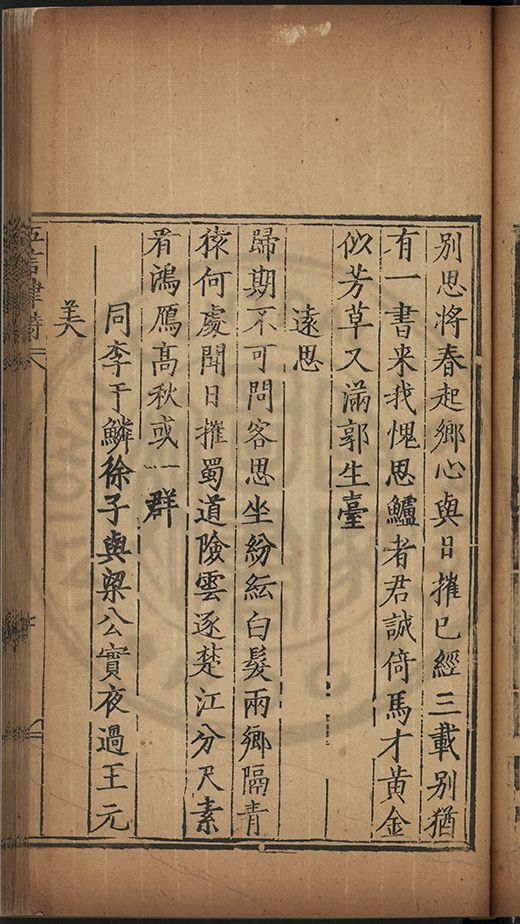 別思將春起鄉心與日摧已經三載別猶
有一書来我愧思鱸者君誠倚馬才黃金
似芳草又滿郭生臺
遠思
歸期不可問客思坐紛紜白髮兩鄉隔青
猿何處聞日摧蜀道險雲逐楚江分尺素
看鴻鴈髙秋或一群
同李于鱗徐子與梁公實夜過王元
美
五言律詩